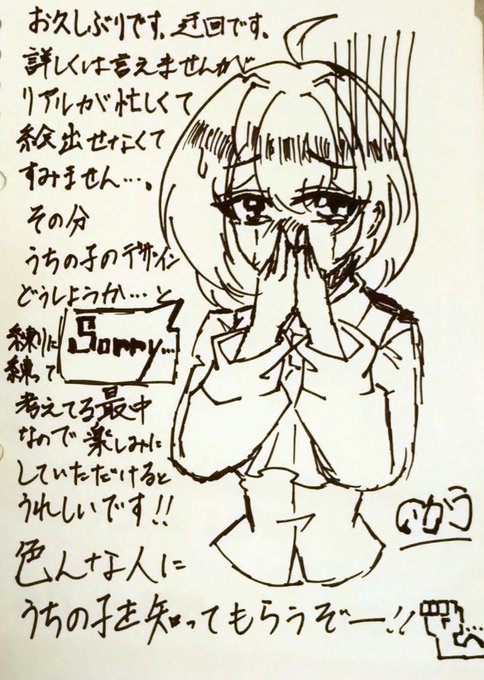 お久しぶりです。迂回です。
詳しくは言えませんが
リアルが忙しくて
絵出せなくて
すみません…。
その分
うちの子のデザイン
どうしようか…と
練りに
練って
Sorry…
考えてる最中
なので楽しみに
していただけると
うれしいです!!
色んな人に
うちの子を知ってもらうぞー!!